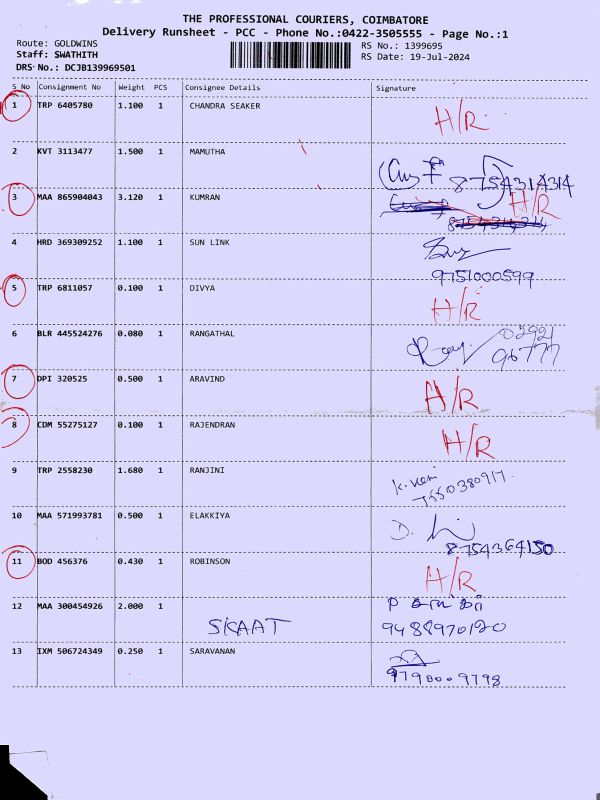 THE PROFESSIONAL COURIERS, COIMBATORE
Delivery Runsheet - PCC - Phone No.:0422-3505555 - Page No.:1
Route: GOLDWINS
Staff: SWATHITH
DRS No.: DCJB139969501
RS No.: 1399695
RS Date: 19-Jul-2024
S No Consignment No Weight PCS Consignee Details Signature
1 TRP 6405780 1.100 1 CHANDRA SEAKER H/R
2 KVT 3113477 1.500 1 MAMUTHA 8754314314
3 MAA 865904043 3.120 1 KUMRAN H/R
4 HRD 369309252 1.100 1 SUN LINK
9751000599
5 TRP 6811057 0.100 1 DIVYA H/R
6 BLR 445524276 0.080 1 RANGATHAL
96777
7 DPI 320525 0.500 1 ARAVIND H/R
8 CDM 55275127 0.100 1 RAJENDRAN H/R
9 TRP 2558230 1.680 1 RANJINI
10 MAA 571993781 0.500 1 ELAKKIYA
8754364150
11 BOD 456376 0.430 1 ROBINSON H/R
12 MAA 300454926 2.000 1
SKAAT 9488970120
13 IXM 506724349 0.250 1 SARAVANAN
979000 9798